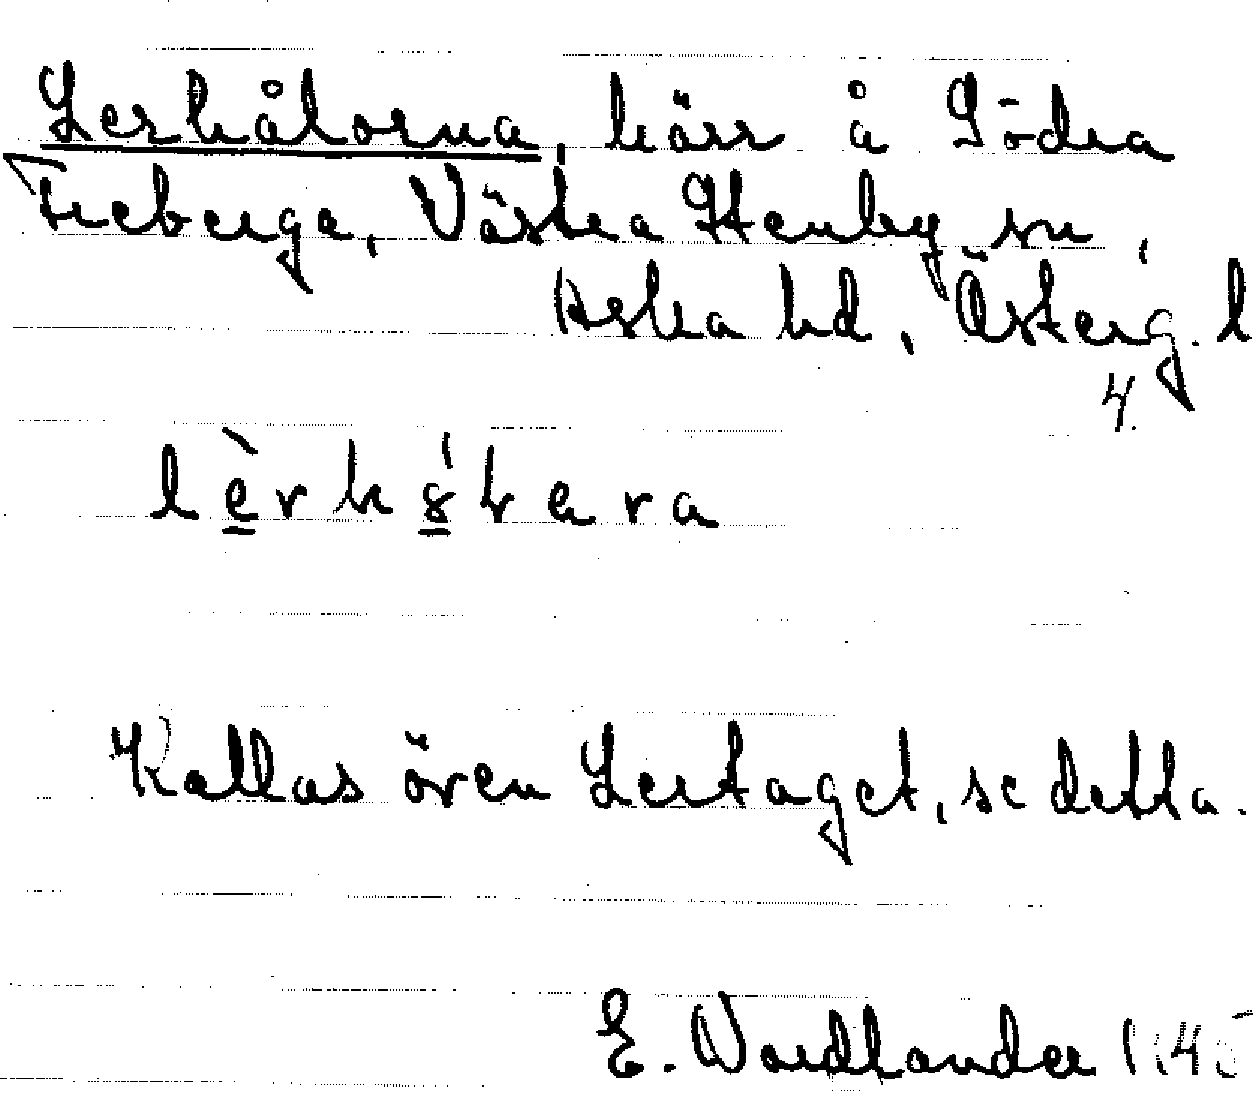 Lerhålorna, kärr å Södra
Freberga, Västra Stenby sn,
Aska hd, Österg. l
4.
Kallas även Lertaget, se detta.
E. Nordlander